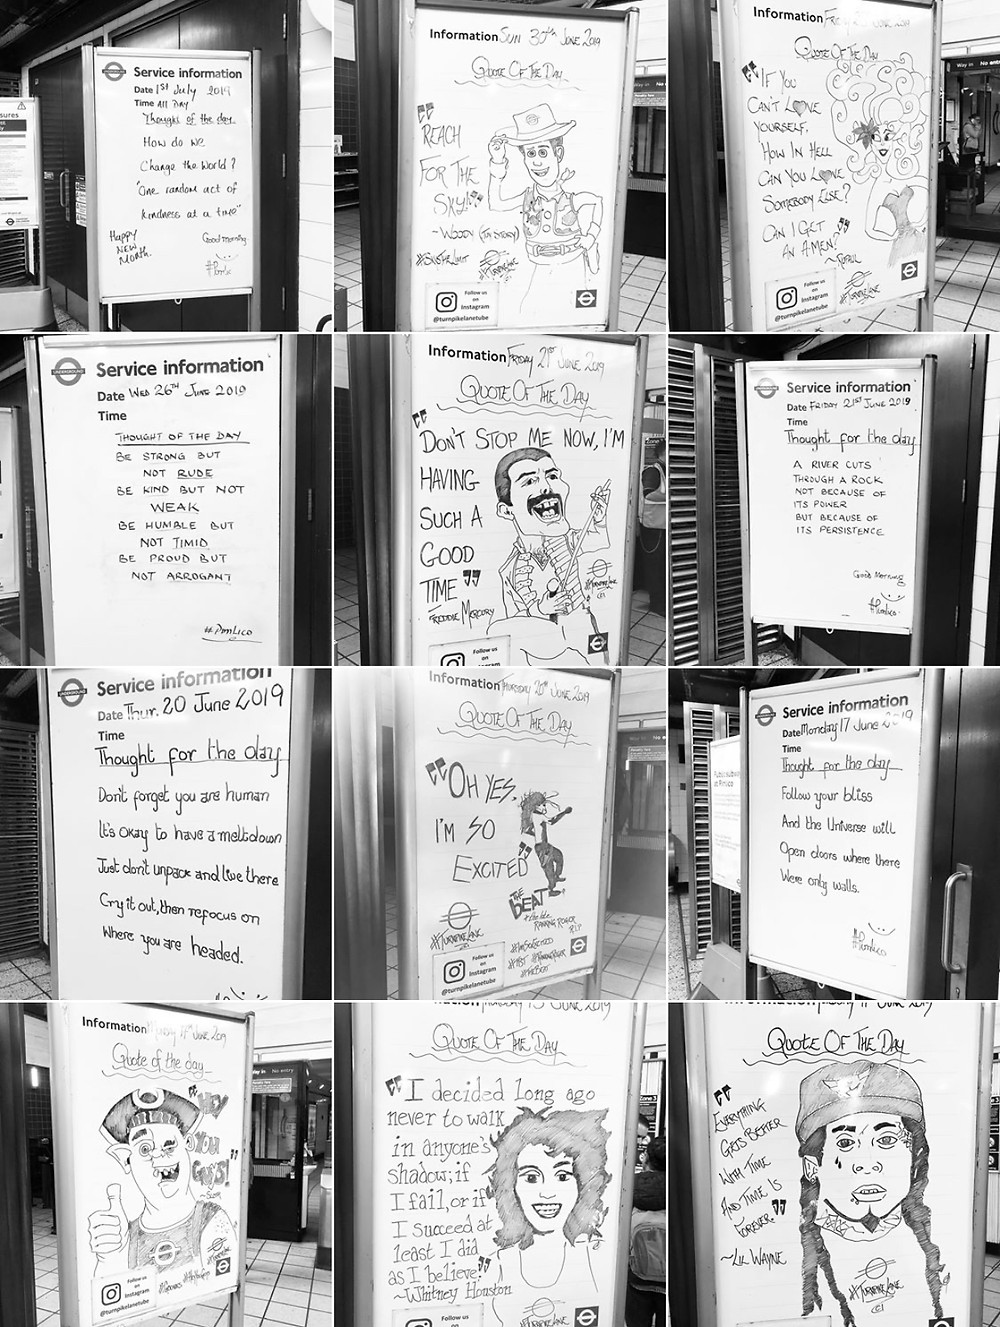 UNDERGROUND
Service information
Date 1ST July 2019
Time All Day
Thought of the day
How do we
Change the World?
"One random act of
kindness at a time"
Happy
New
Month.
Good morning
#Pimlico
Information Sun 30th June 2019
Quote Of The Day
"Reach
For The
Sky!"
~Woody (Toy Story)
#TurnpikeLane
Follow us
on
Instagram
@turnpikelanetube
Information Friday 2019
Quote Of The Day
"If You
Can't Love
Yourself,
How In Hell
Can You Love
Somebody Else?
Can I Get
An Amen?"
~RuPaul
#TurnpikeLane
Follow us
on
Instagram
@turnpikelanetube
Way in No entry
UNDERGROUND
Service information
Date Wed 26TH June 2019
Time
THOUGHT OF THE DAY
BE STRONG BUT
NOT RUDE
BE KIND BUT NOT
WEAK
BE HUMBLE BUT
NOT TIMID
BE PROUD BUT
NOT ARROGANT
#Pimlico
Information Friday 21st June 2019
Quote Of The Day
"Don't Stop Me Now, I'm
Having
Such A
Good
Time"
Freddie Mercury
#TurnpikeLane
Follow us
UNDERGROUND
Service information
Date FRIDAY 21ST JUNE 2019
Time
Thought for the day
A RIVER CUTS
THROUGH A ROCK
NOT BECAUSE OF
ITS POWER
BUT BECAUSE OF
ITS PERSISTENCE
Good Morning
#Pimlico
UNDERGROUND
Service information
Date Thur. 20 June 2019
Time
Thought for the day
Don't forget you are human
It's okay to have a meltdown
Just don't unpack and live there
Cry it out, then refocus on
Where you are headed.
Information Thursday 20th June 2019
Quote Of The Day
"Oh Yes,
I'm So
Excited"
The
Beat
Ranking Roger
R.I.P
#TurnpikeLane
#ImSoExcited
#RankingRoger
#TheBeat
Follow us
on
Instagram
@turnpikelanetube
UNDERGROUND
Service information
Date Monday 17 June 2019
Time
Thought for the day
Follow your bliss
And the Universe will
Open doors where there
Were only walls.
#Pimlico
Information June 2019
Quote of the day
"Hey
You
Guys!"
~Sloth
#Goonies
Follow us
on
Instagram
@turnpikelanetube
Way in No entry
June 2019
Quote Of The Day
"I decided long ago
never to walk
in anyone's
shadow; if
I fail, or if
I succeed at
least I did
as I believe."
~Whitney Houston
#TurnpikeLane
Follow us
June 2019
Quote Of The Day
"Everything
Gets Better
With Time
And Time Is
Forever"
~Lil Wayne
#TurnpikeLane